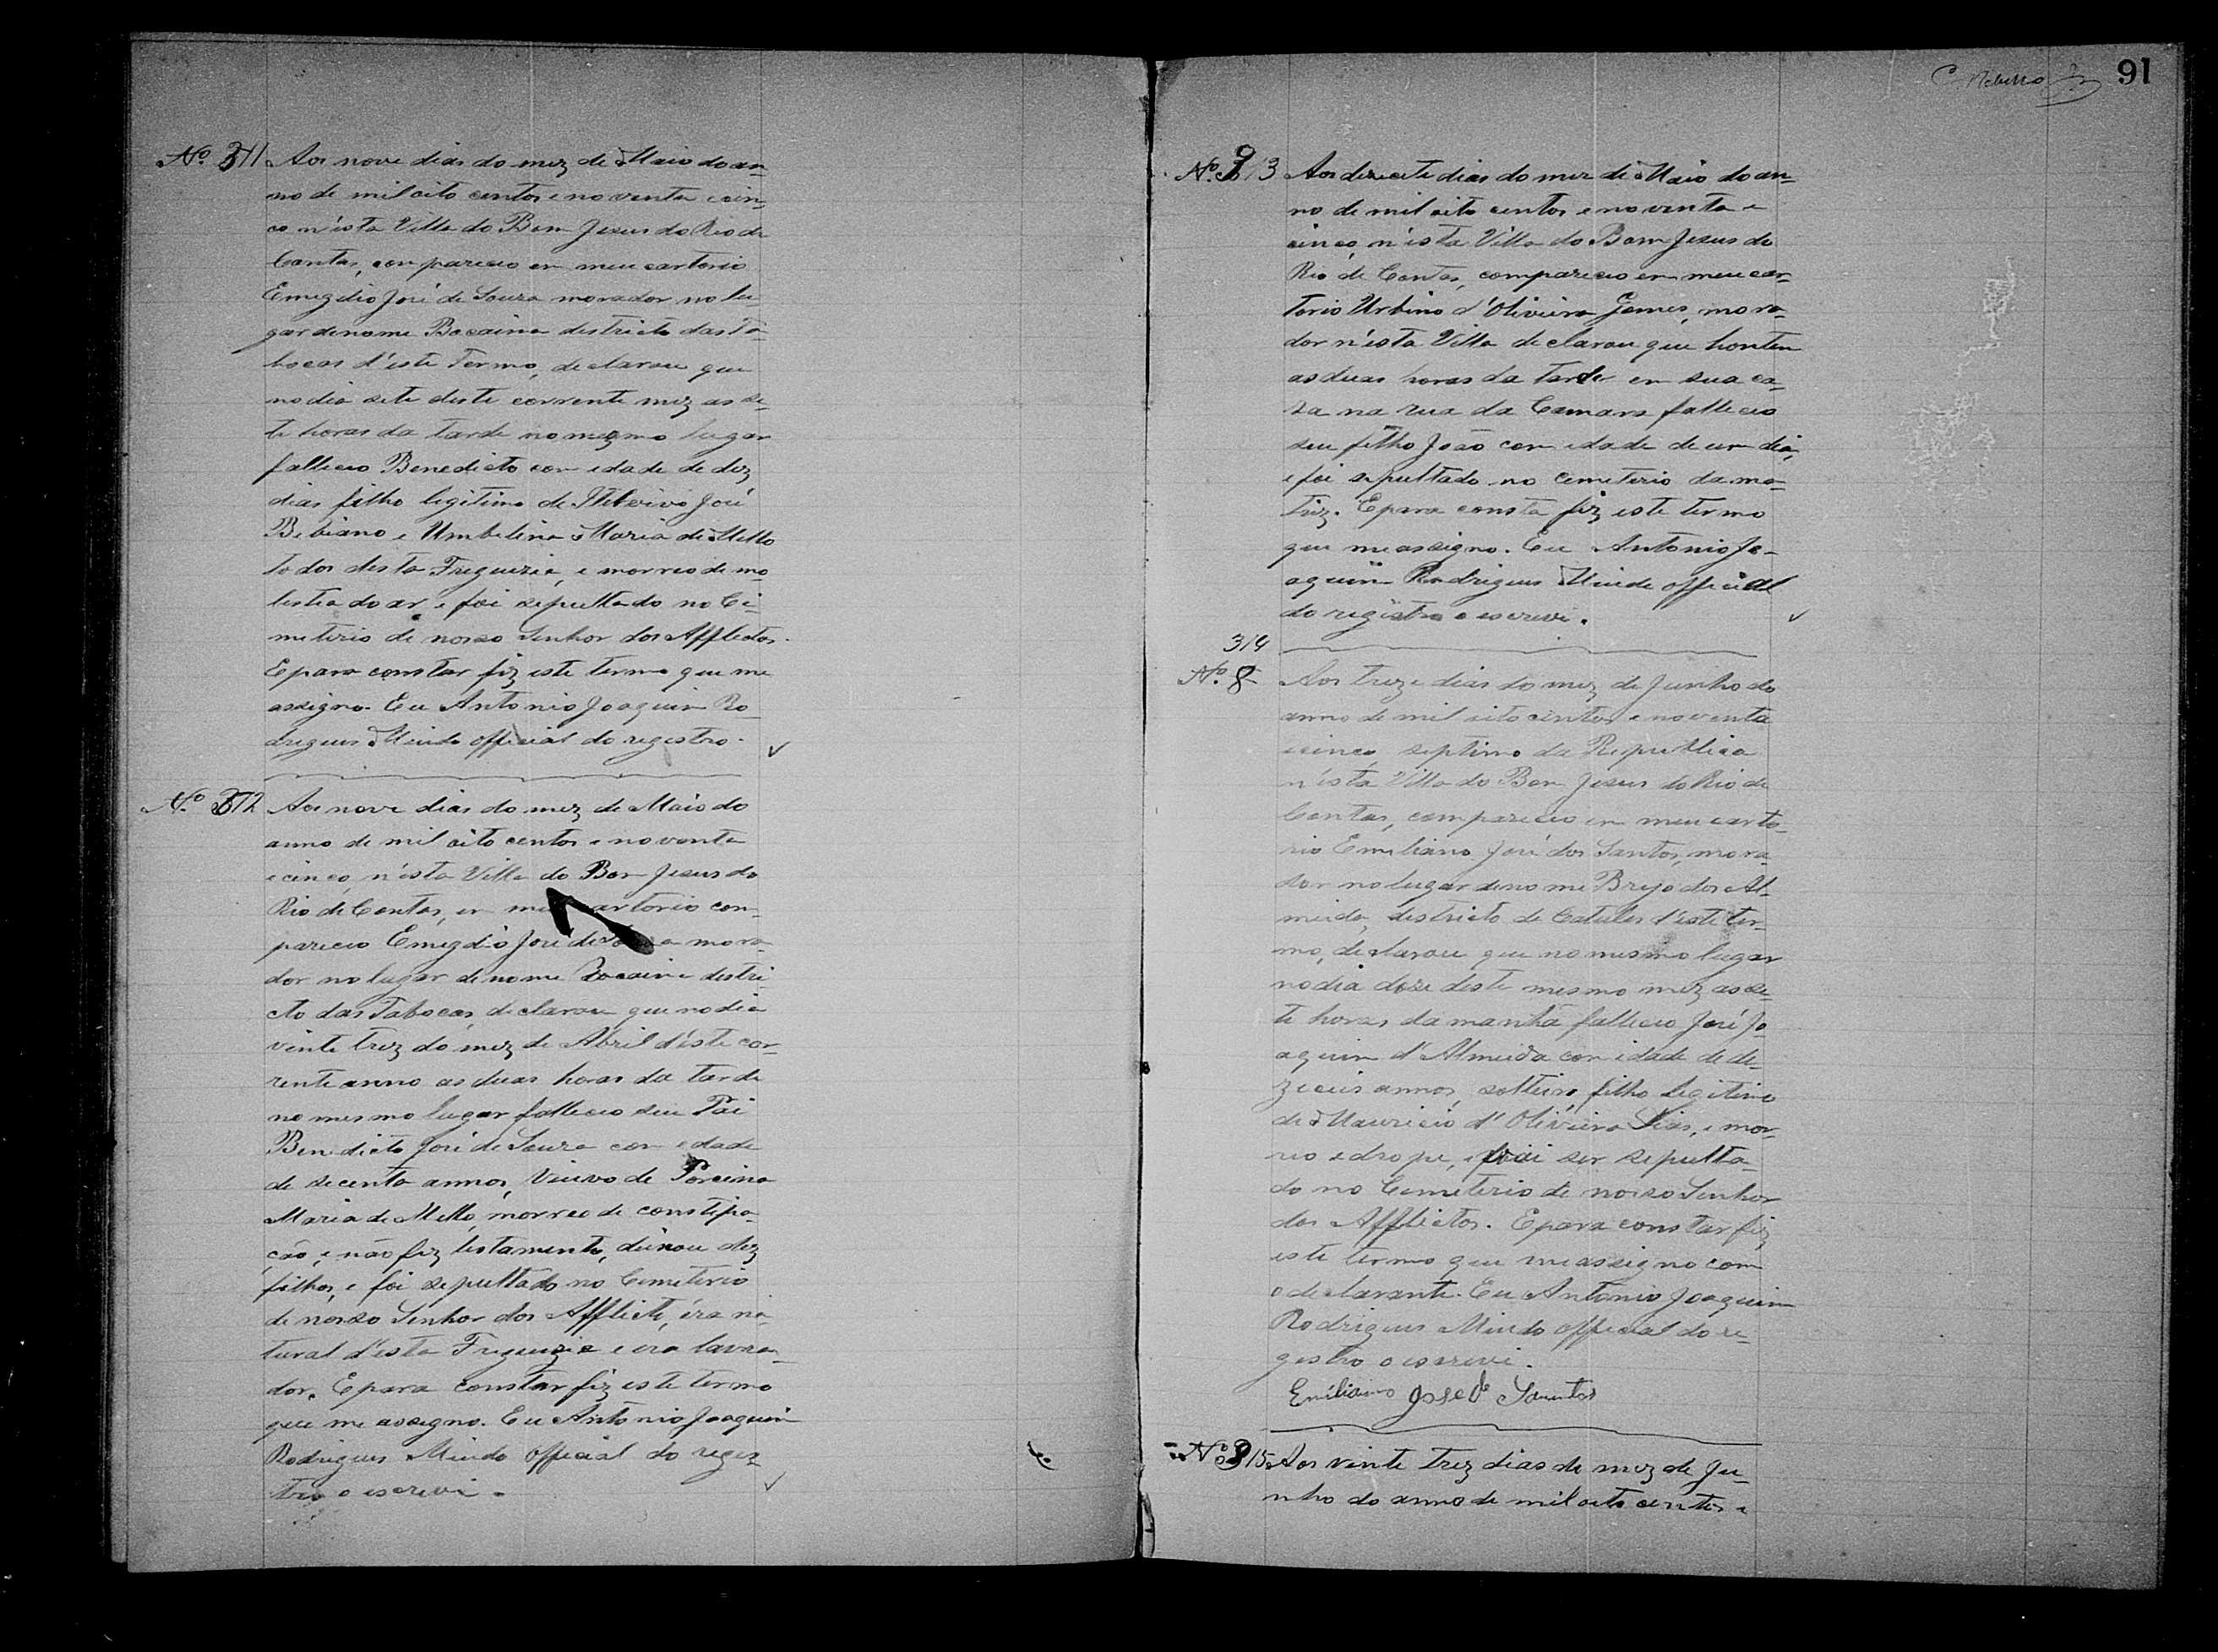 Nº 311 Aos nove dias do mez de Maio do an-
no de mil oito centos e noventa e cin-
co n'esta Villa do Bom Jesus do Rio de
Contas, compareceo em meu cartorio
Emegdio José de Souza morador no lu
gar denome Bocaina destricto das Ta-
bocas d'este Termo, declarou que
no dia sete deste corrente mez as se-
te horas da tarde no mezmo lugar
falleceo Benedicto com idade de dez
dias filho legitimo de José
Bibiano e Umbelina Maria de Mello
todos desta Freguezia, e morreo de mo-
lestia do ar, e foi sepultado no Ce-
meterio de nosso Senhor dos Afflictos.
E para constar fiz este termo que me
assigno. Eu Antonio Joaquim Ro-
drigues official do registro.
Nº 312 Aos nove dias do mez de Maio do
anno de mil oito centos e noventa
e cinco, n'esta Villa do Bom Jesus do
Rio de Contas, em meu cartorio com-
pareceo Emegdio José de Souza mora-
dor no lugar denome Bocaina destri-
cto das Tabocas, declarou que no dia
vinte trez do mez de Abril d'este cor-
rente anno as duas horas da tarde
no mesmo lugar falleceo seu Pai
Benedicto José de Souza com edade
de secenta annos, Viuvo de Porcina
Maria de Mello, morreo de constipa-
ção, e não fez testamento, deixou dez
filhos, e foi sepultado no Cemeterio
de nosso Senhor dos Afflicti, éra na-
tural d'esta Freguezia e era lavra-
dor. E para constar fiz este termo
que me assigno. Eu Antonio Joaquim
Rodrigues official do regez-
tro o escrevi.
91
Nº 313 Aos desecete dias do mez de Maio do an-
no de mil oito centos e noventa e
cinco, n'esta Villa do Bom Jesus do
Rio de Contas, compareceo em meu car-
torio Urbino d'Oliveira Gomes, mora-
dor n'esta Villa declarou que hontem
as duas horas da tarde em sua ca-
sa na rua da Camara falleceo
seu filho João com edade de um dia,
e foi sepultado no cemeterio da ma-
triz. E para consta fiz este termo
que me assigno. Eu Antonio Jo-
aquim Rodrigues official
do registro o escrevi.
314
Nº 8 Aos treze dias do mez de Junho do
anno de mil oito centos e noventa
e cinco, septimo da Republica
n'esta Villa do Bom Jesus do Rio de
Contas, compareceo em meu carto-
rio Emeliano José dos Santos, mora-
dor no lugar denome Brejo dos Al-
meida, destricto de Catules d'este ter-
mo, declarou que no mesmo lugar
no dia doze deste mesmo mez as se-
te horas da manhã falleceo José Jo-
aquim d'Almeida com idade de de-
zeceis annos, solteiro, filho legitimo
de Mauricio d'Oliveira Dias, e mor-
reo edrope, e foi ser sepulta-
do no Cemeterio de nosso Senhor
dos Afflictos. E para constar fiz
este termo que me assigno com
o declarante. Eu Antonio Joaquim
Rodrigues official do re-
gistro o escrevi.
Emiliano Jose de Santos
Nº 315 Aos vinte trez dias do mez de Ju-
nho do anno de mil oito centos e